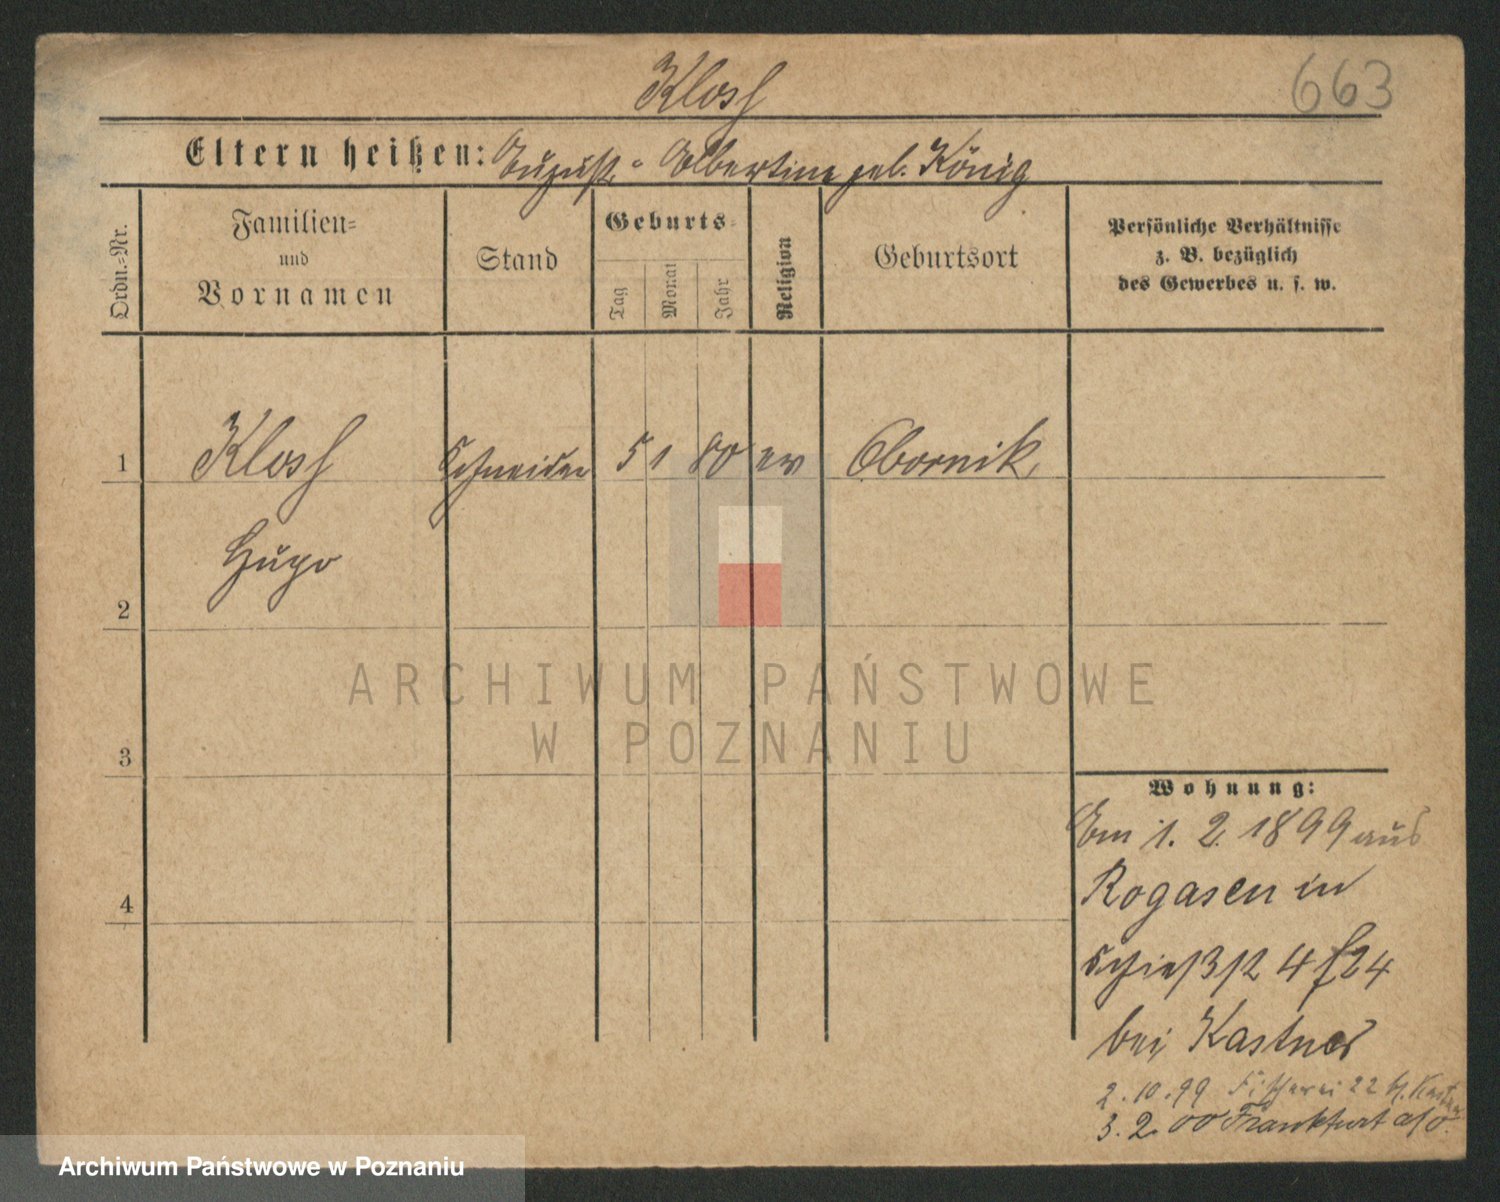 Klosh
663
Eltern heißen: August - Albertine geb. König
Ordn.=Nr.
Familien=
und
Vornamen
Stand
Geburts=
Tag
Monat
Jahr
Religion
Geburtsort
Persönliche Verhältnisse
z. B. bezüglich
des Gewerbes u. s. w.
1 Klosh Schneider 5 1 80 ev Obornik
Hugo
2
3
4
Wohnung:
Am 1. 2. 1899 aus
Rogasen in
4
bei Kastner
2.10.99 Fischerei 22 b. Kastner
3.2.00 Frankfurt a/O.
ARCHIWUM PAŃSTWOWE
W POZNANIU
Archiwum Państwowe w Poznaniu